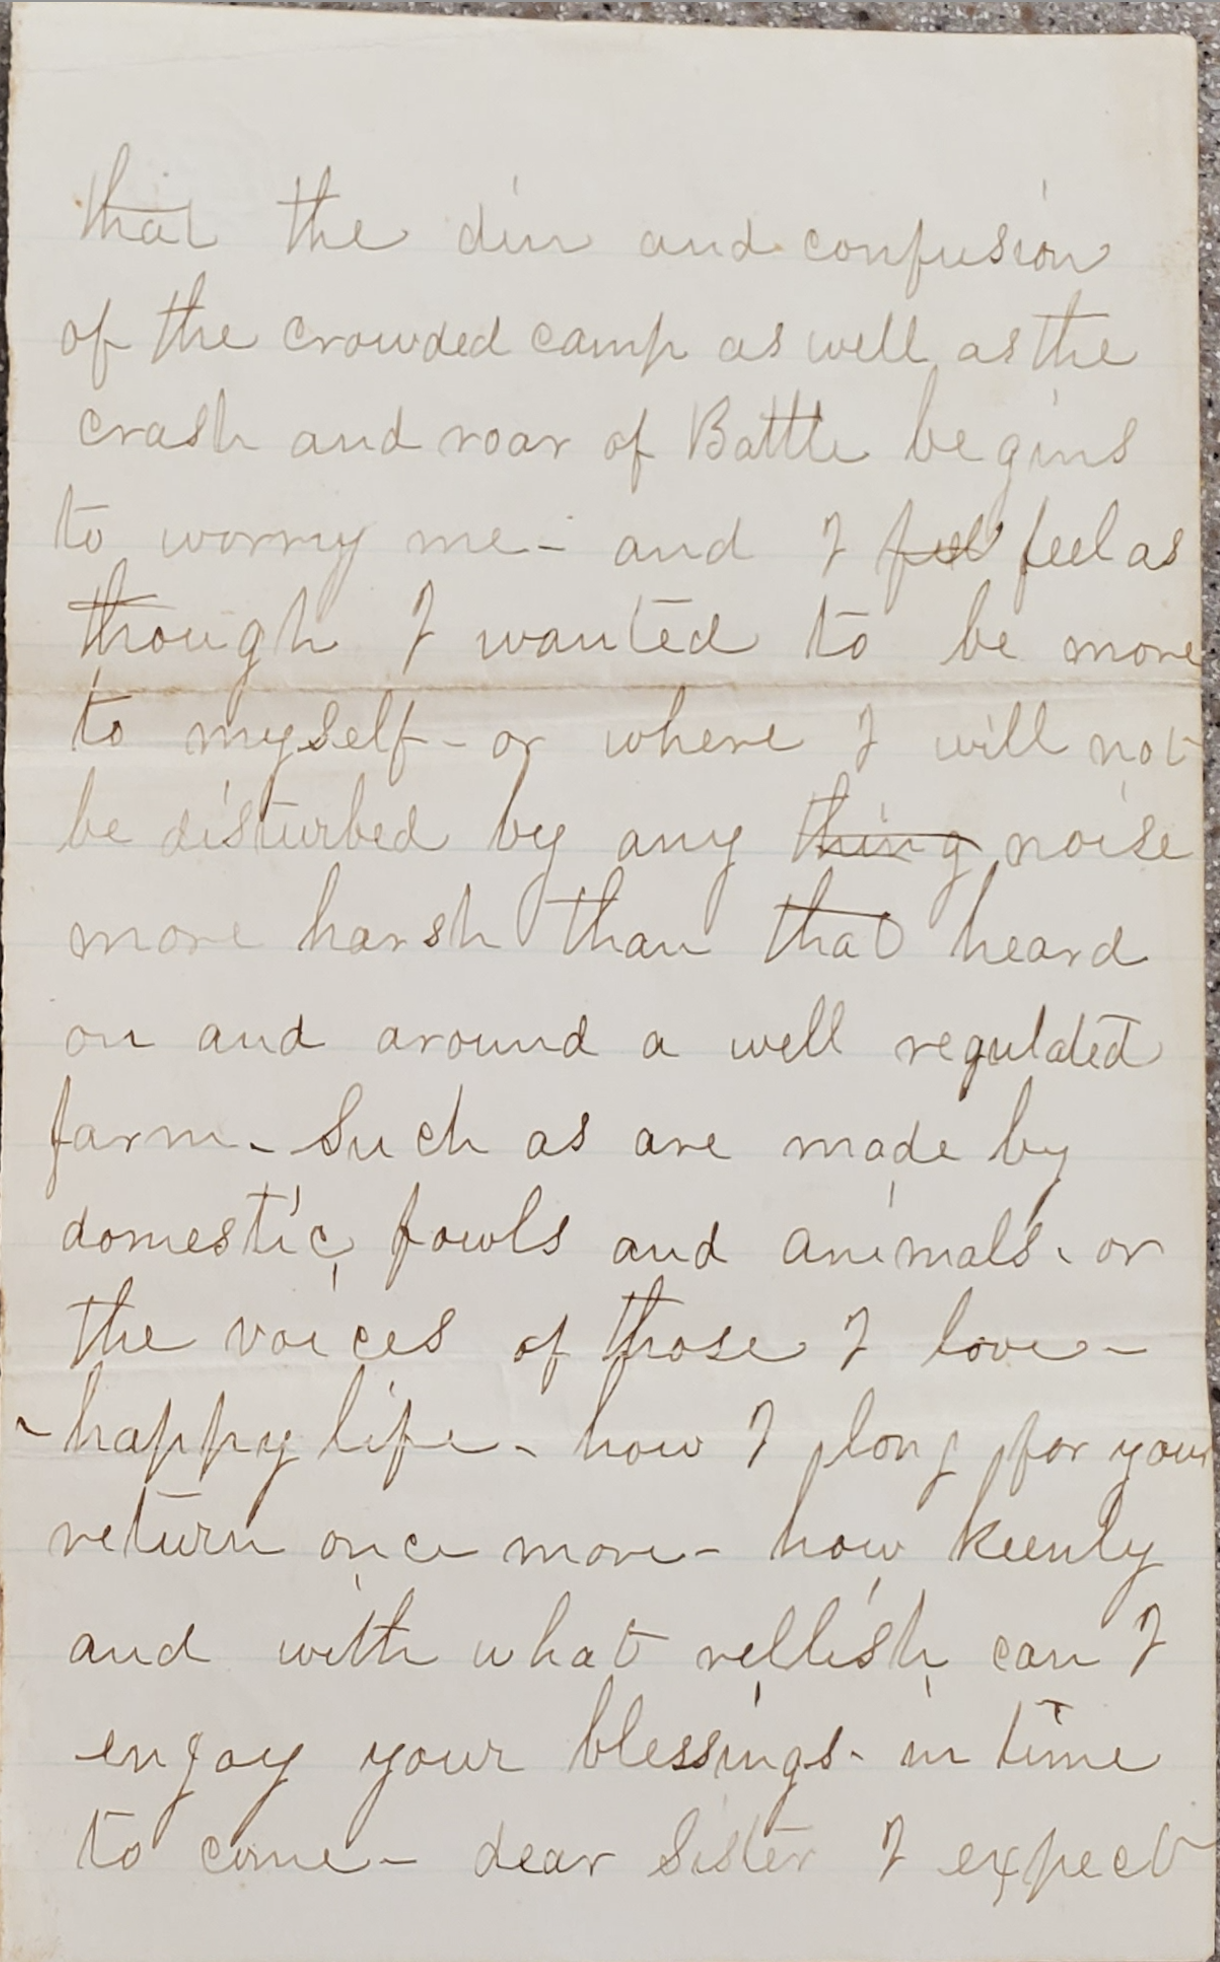 that the din and confusion
of the crowded camp as well as the
crash and roar of Battle begins
to worry me - and I feel feel as
though I wanted to be more
to myself - or where I will not
be disturbed by any thing noise
more harsh than that heard
on and around a well regulated
farm - Such as are made by
domestic fowls and animals - or
the voices of those I love -
- happy life - how I long for your
return once more - how keenly
and with what rellish can I
enjoy your blessings - in time
to come - dear Sister I expect